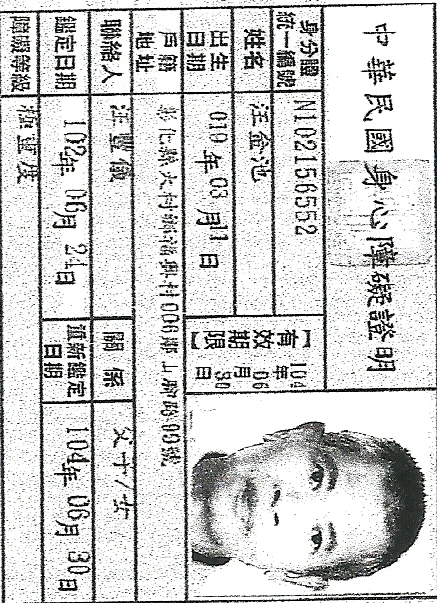 中華民國身心障礙證明
身分證統一編號 N102156552
姓名 汪金池
出生日期 019年03月11日
【有效期限】 104年06月30日
戶籍地址 彰化縣大村鄉福興村006鄰山腳路
聯絡人 汪豐儀 關係 父子/女
鑑定日期 102年06月24日 重新鑑定日期 104年06月30日
障礙等級 重度